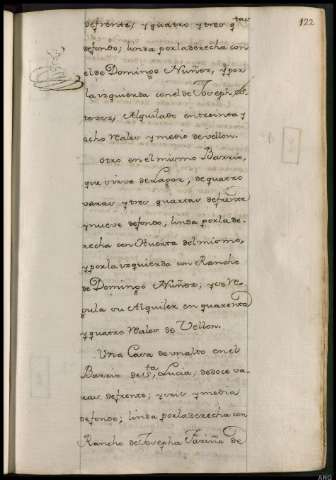 122
defrente, y quatro, y tres q.tas
defondo; linda porladerecha con
el de Domingo Nuñez, y por
la izquierda con el de Joseph
Alquilado entreinta y
ocho Rales y medio de vellon.
Otro en el mismo Barrio,
que sirve de Lagar, de quatro
varas y tres quartas defrente
y nueve defondo, linda porlade-
recha con Otro del mismo,
y porla izquierda con Rancho
de Domingo Nuñez, y
su Alquiler en quarenta
y quatro Rales de Vellon.
Una Casa de unalto en el
Barrio de S.ta Lucia, dedoce va-
ras defrente; y seis y media
defondo; linda porladerecha con
Rancho de Josepha Fariña de